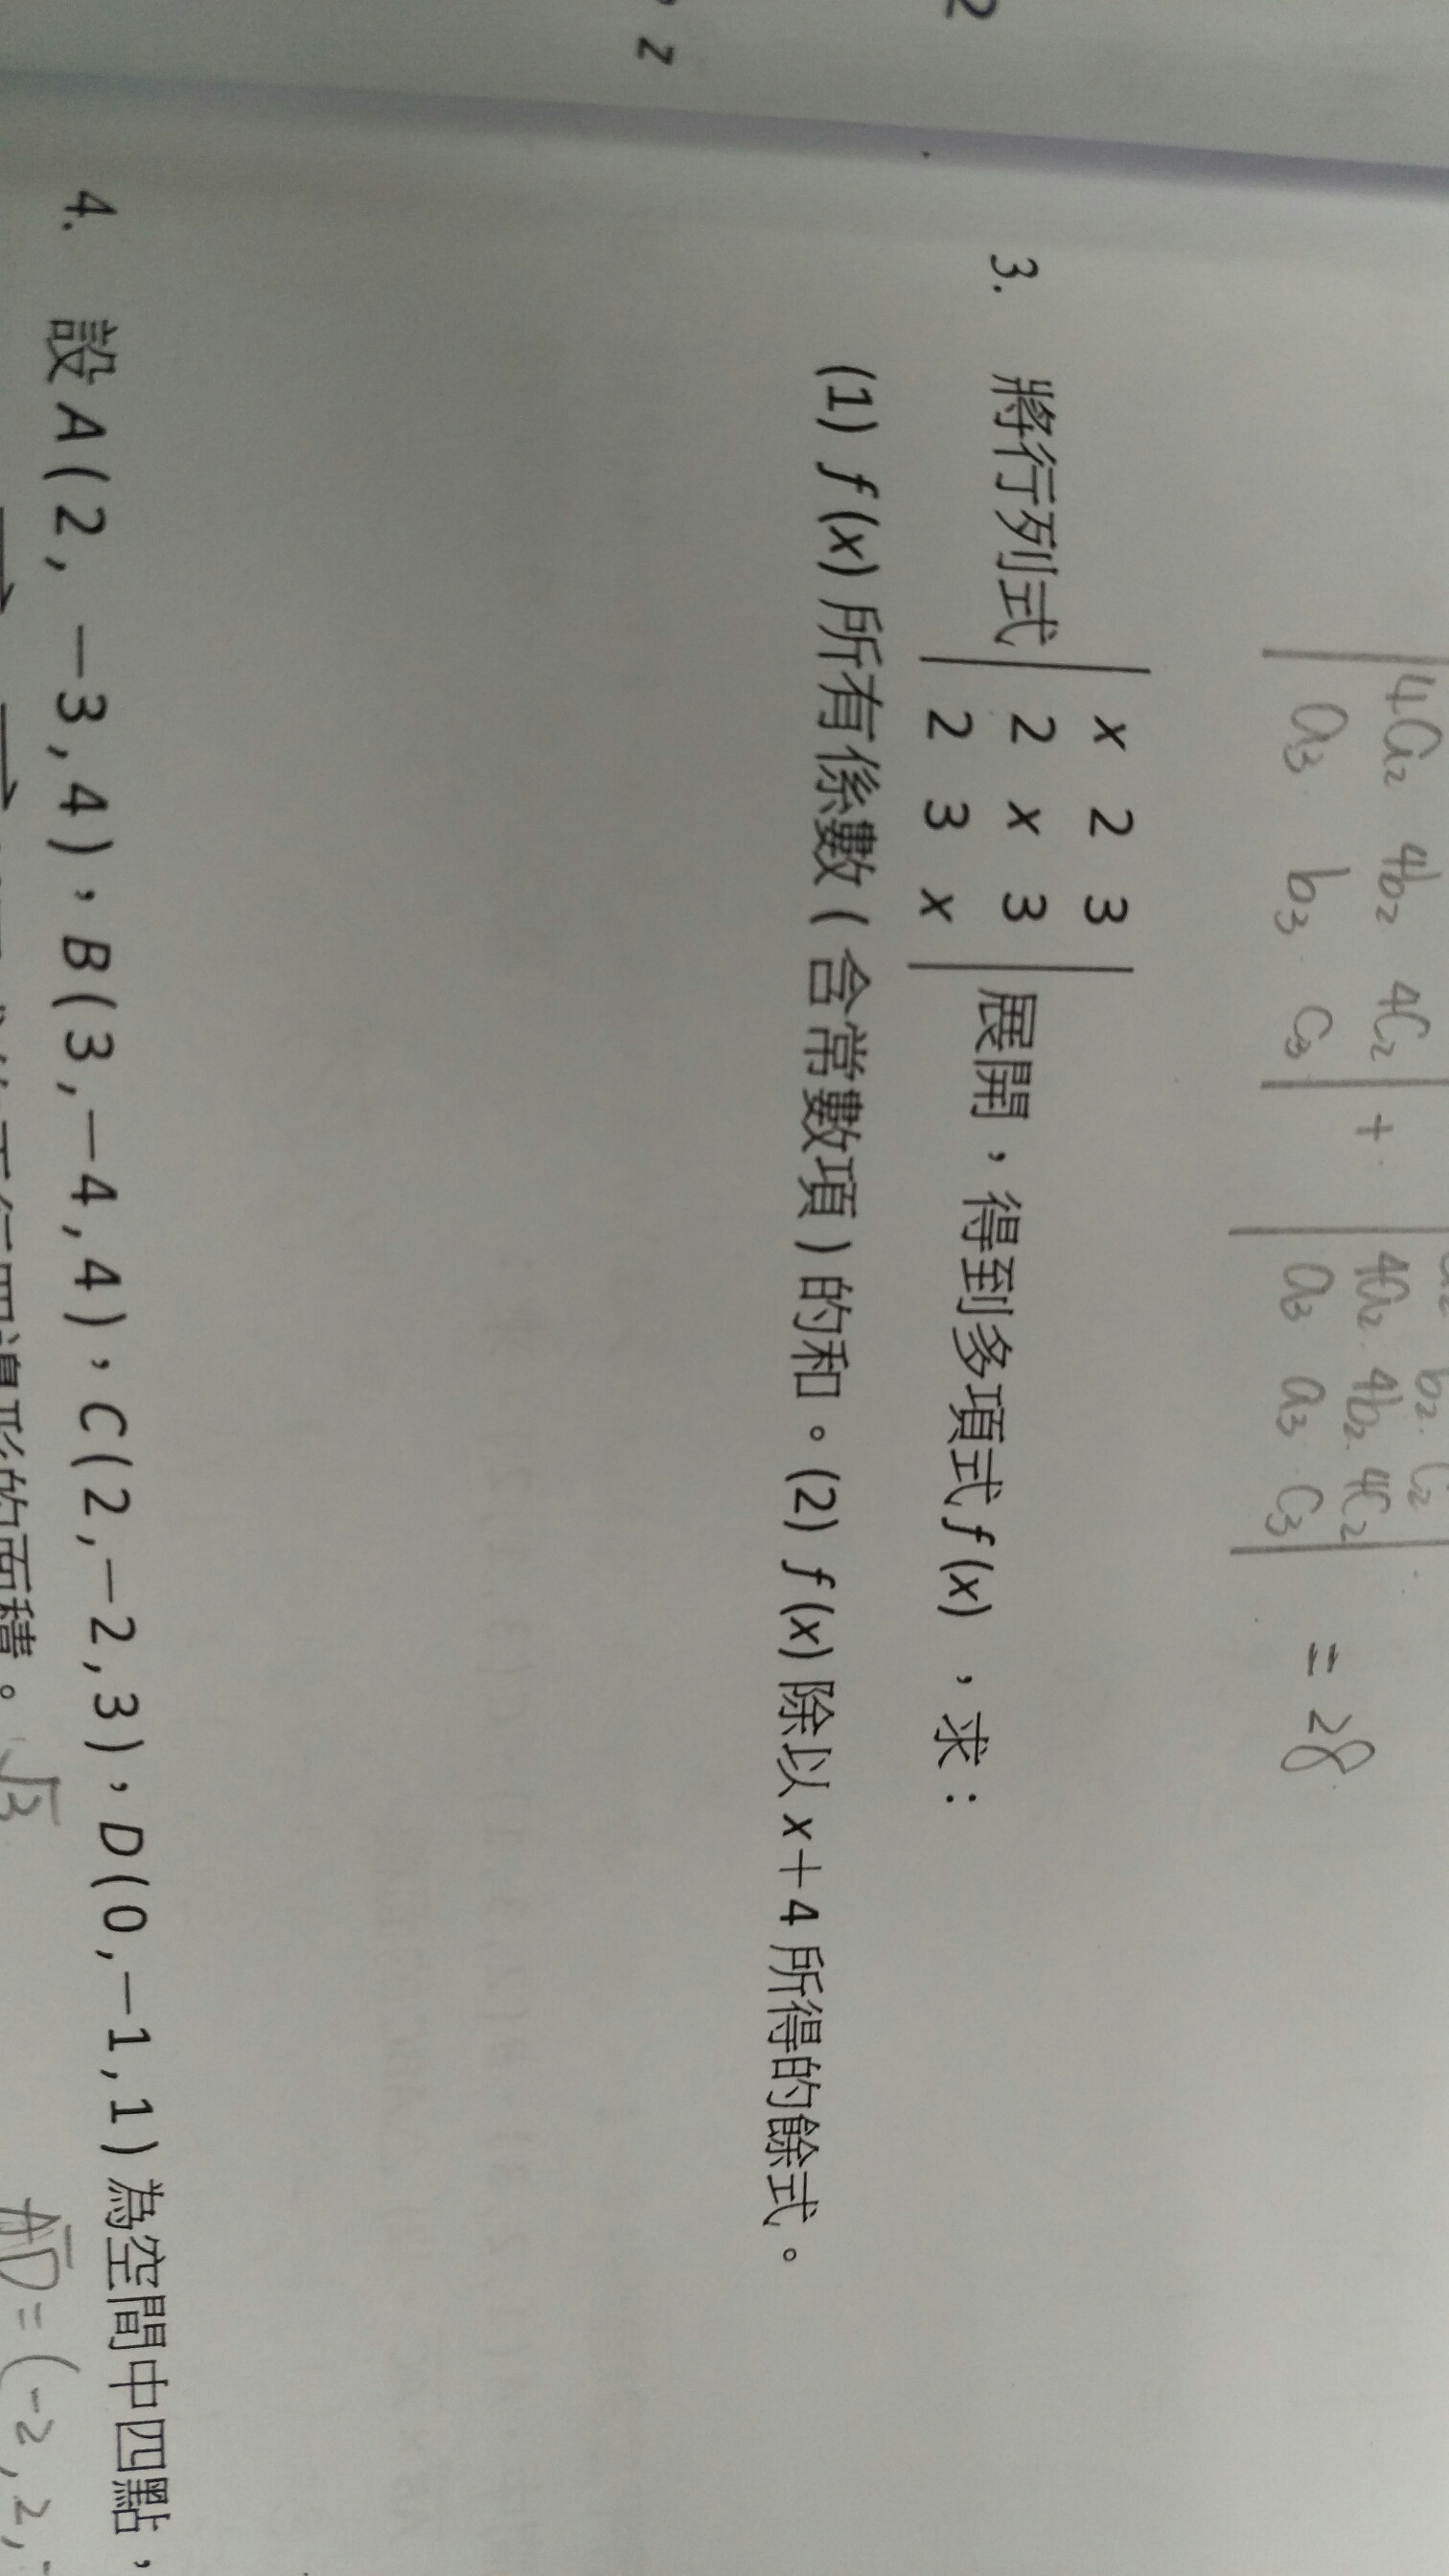 2
z
4a₂ 4b₂ 4c₂ 4a₂ 4b₂ 4c₂
a₃ b₃ c₃ + a₃ a₃ c₃ = 28
3. 將行列式
x 2 3
2 x 3
2 3 x
展開，得到多項式 f(x) ，求：
(1) f(x) 所有係數(含常數項)的和。(2) f(x) 除以 x+4 所得的餘式。
4. 設 A(2, -3,4)，B(3,-4,4)，C(2,-2,3)，D(0,-1,1) 為空間中四點，
行四邊形的面積。 √3
AD = (-2, 2,